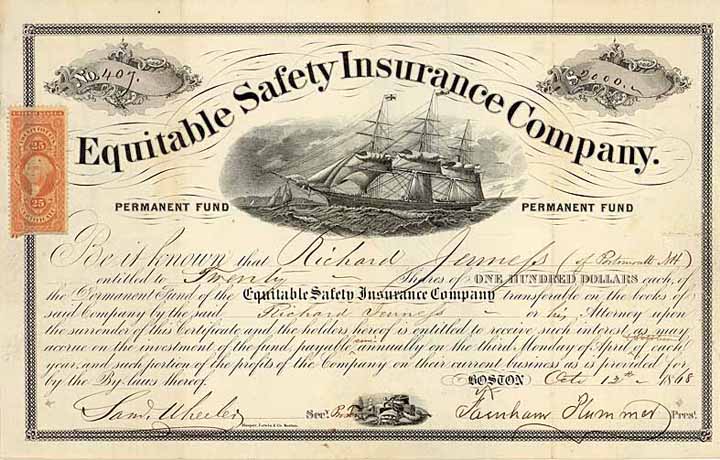 No. 407.
$ 2000.
Equitable Safety Insurance Company.
PERMANENT FUND
PERMANENT FUND
25 25
Be it known that Richard Jenness (of Portsmouth NH)
entitled to Twenty Shares of ONE HUNDRED DOLLARS each, of
the Permanent Fund of the Equitable Safety Insurance Company transferable on the books of
said Company by the said Richard Jenness or his Attorney upon
the surrender of this Certificate and the holders hereof is entitled to receive such interest as may
accrue on the investment of the fund, payable semi annually on the third Monday of April & October of each
year, and such portion of the profits of the Company on their current business as is provided for
by the By-laws thereof.
BOSTON Oct 12th 1868
Saml Wheeler Secy. Farnham Plummer Prest.